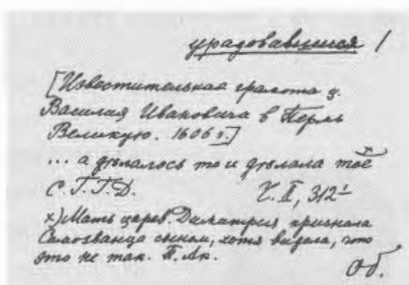 урадовавшися /
[Известительная грамота ц.
Василия Ивановича в Пермь
Великую. 1606 г.]
... а дѣлалось то и дѣлала тоё x)
С.Г.Г.Д. Ч. II, 312
x) Мать царев. Димитрия признала
Самозванца сыном, хотя видела, что
это не так. П. Ак.
Об.